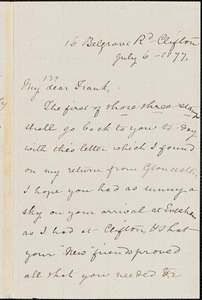 16 Belgrave Rd. Clifton
July 6 - 1877.
My dear Frank,
The first of those three
shall go back to you to-day
with this letter which I found
on my return from Gloucester,
I hope you had as sunny a
sky on your arrival at Evesham
as I had at Clifton, & that
your "New" friends proved
all that you needed &c